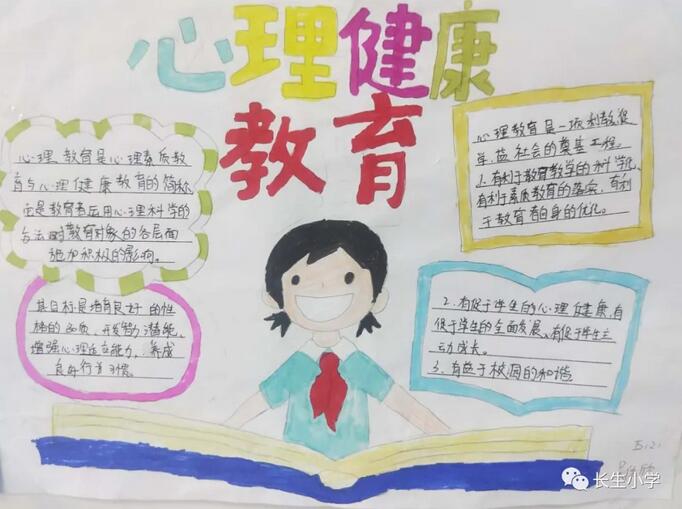 心理健康
教育
心理教育是心理素质教
育与心理健康教育的简称
它是教育者应用心理科学的
方法对教育对象的各层面
施加积极的影响。
其目标是培育良好的性
格的品质、开发智力潜能、
增强心理适应能力、养成
良好行为习惯。
心理教育是一项利教,促
学,益社会的奠基工程。
1、有利于教育教学的科学化、
有利于素质教育的落实、有利
于教育者自身的优化。
2、有促于学生的心理健康,有
促于学生的全面发展、有促于学生主
动成长。
3、有益于校园的和谐
五(2)
长生小学